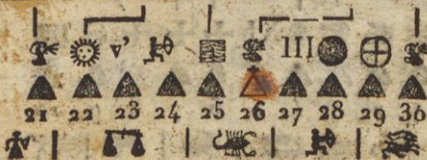 III
21 22 23 24 25 26 27 28 29 30